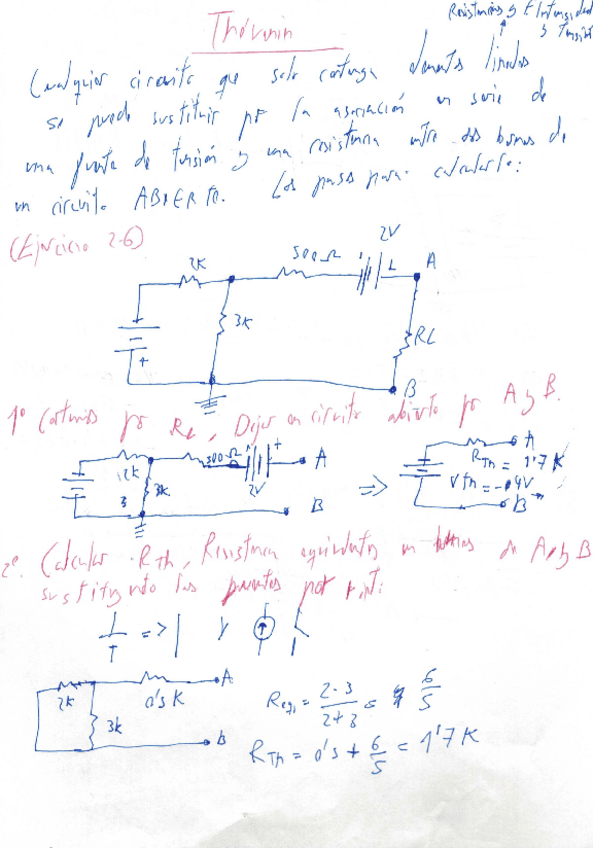 Resistencias y F. Intensidad
y Tensión
Thévenin
Cualquier circuito que solo contenga elementos lineales
se puede sustituir por la asociación en serie de
una fuente de tensión y una resistencia entre dos bornas de
un circuito ABIERTO. Los pasos para calcularlo:
(Ejercicio 2.6)
2K
500Ω
2V
A
3K
RL
+
B
1º Cortamos por RL, Dejar en circuito abierto por A y B.
2K
500Ω
+
A
3K
2V
B
=>
A
RTh = 1'7K
Vth = -0'4V
B
2º. Calcular RTh, Resistencia equivalente en bornas de A y B
sustituyendo las fuentes por r.int:
=> y
2K
0'5K
A
3K
B
Req1 = 2·3/2+3 = 6/5
RTh = 0'5 + 6/5 = 1'7K